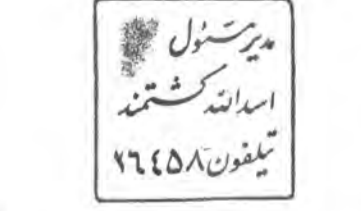 مدیر مسئول
اسدالله کشتمند
تیلفون ۲۶۴۵۸